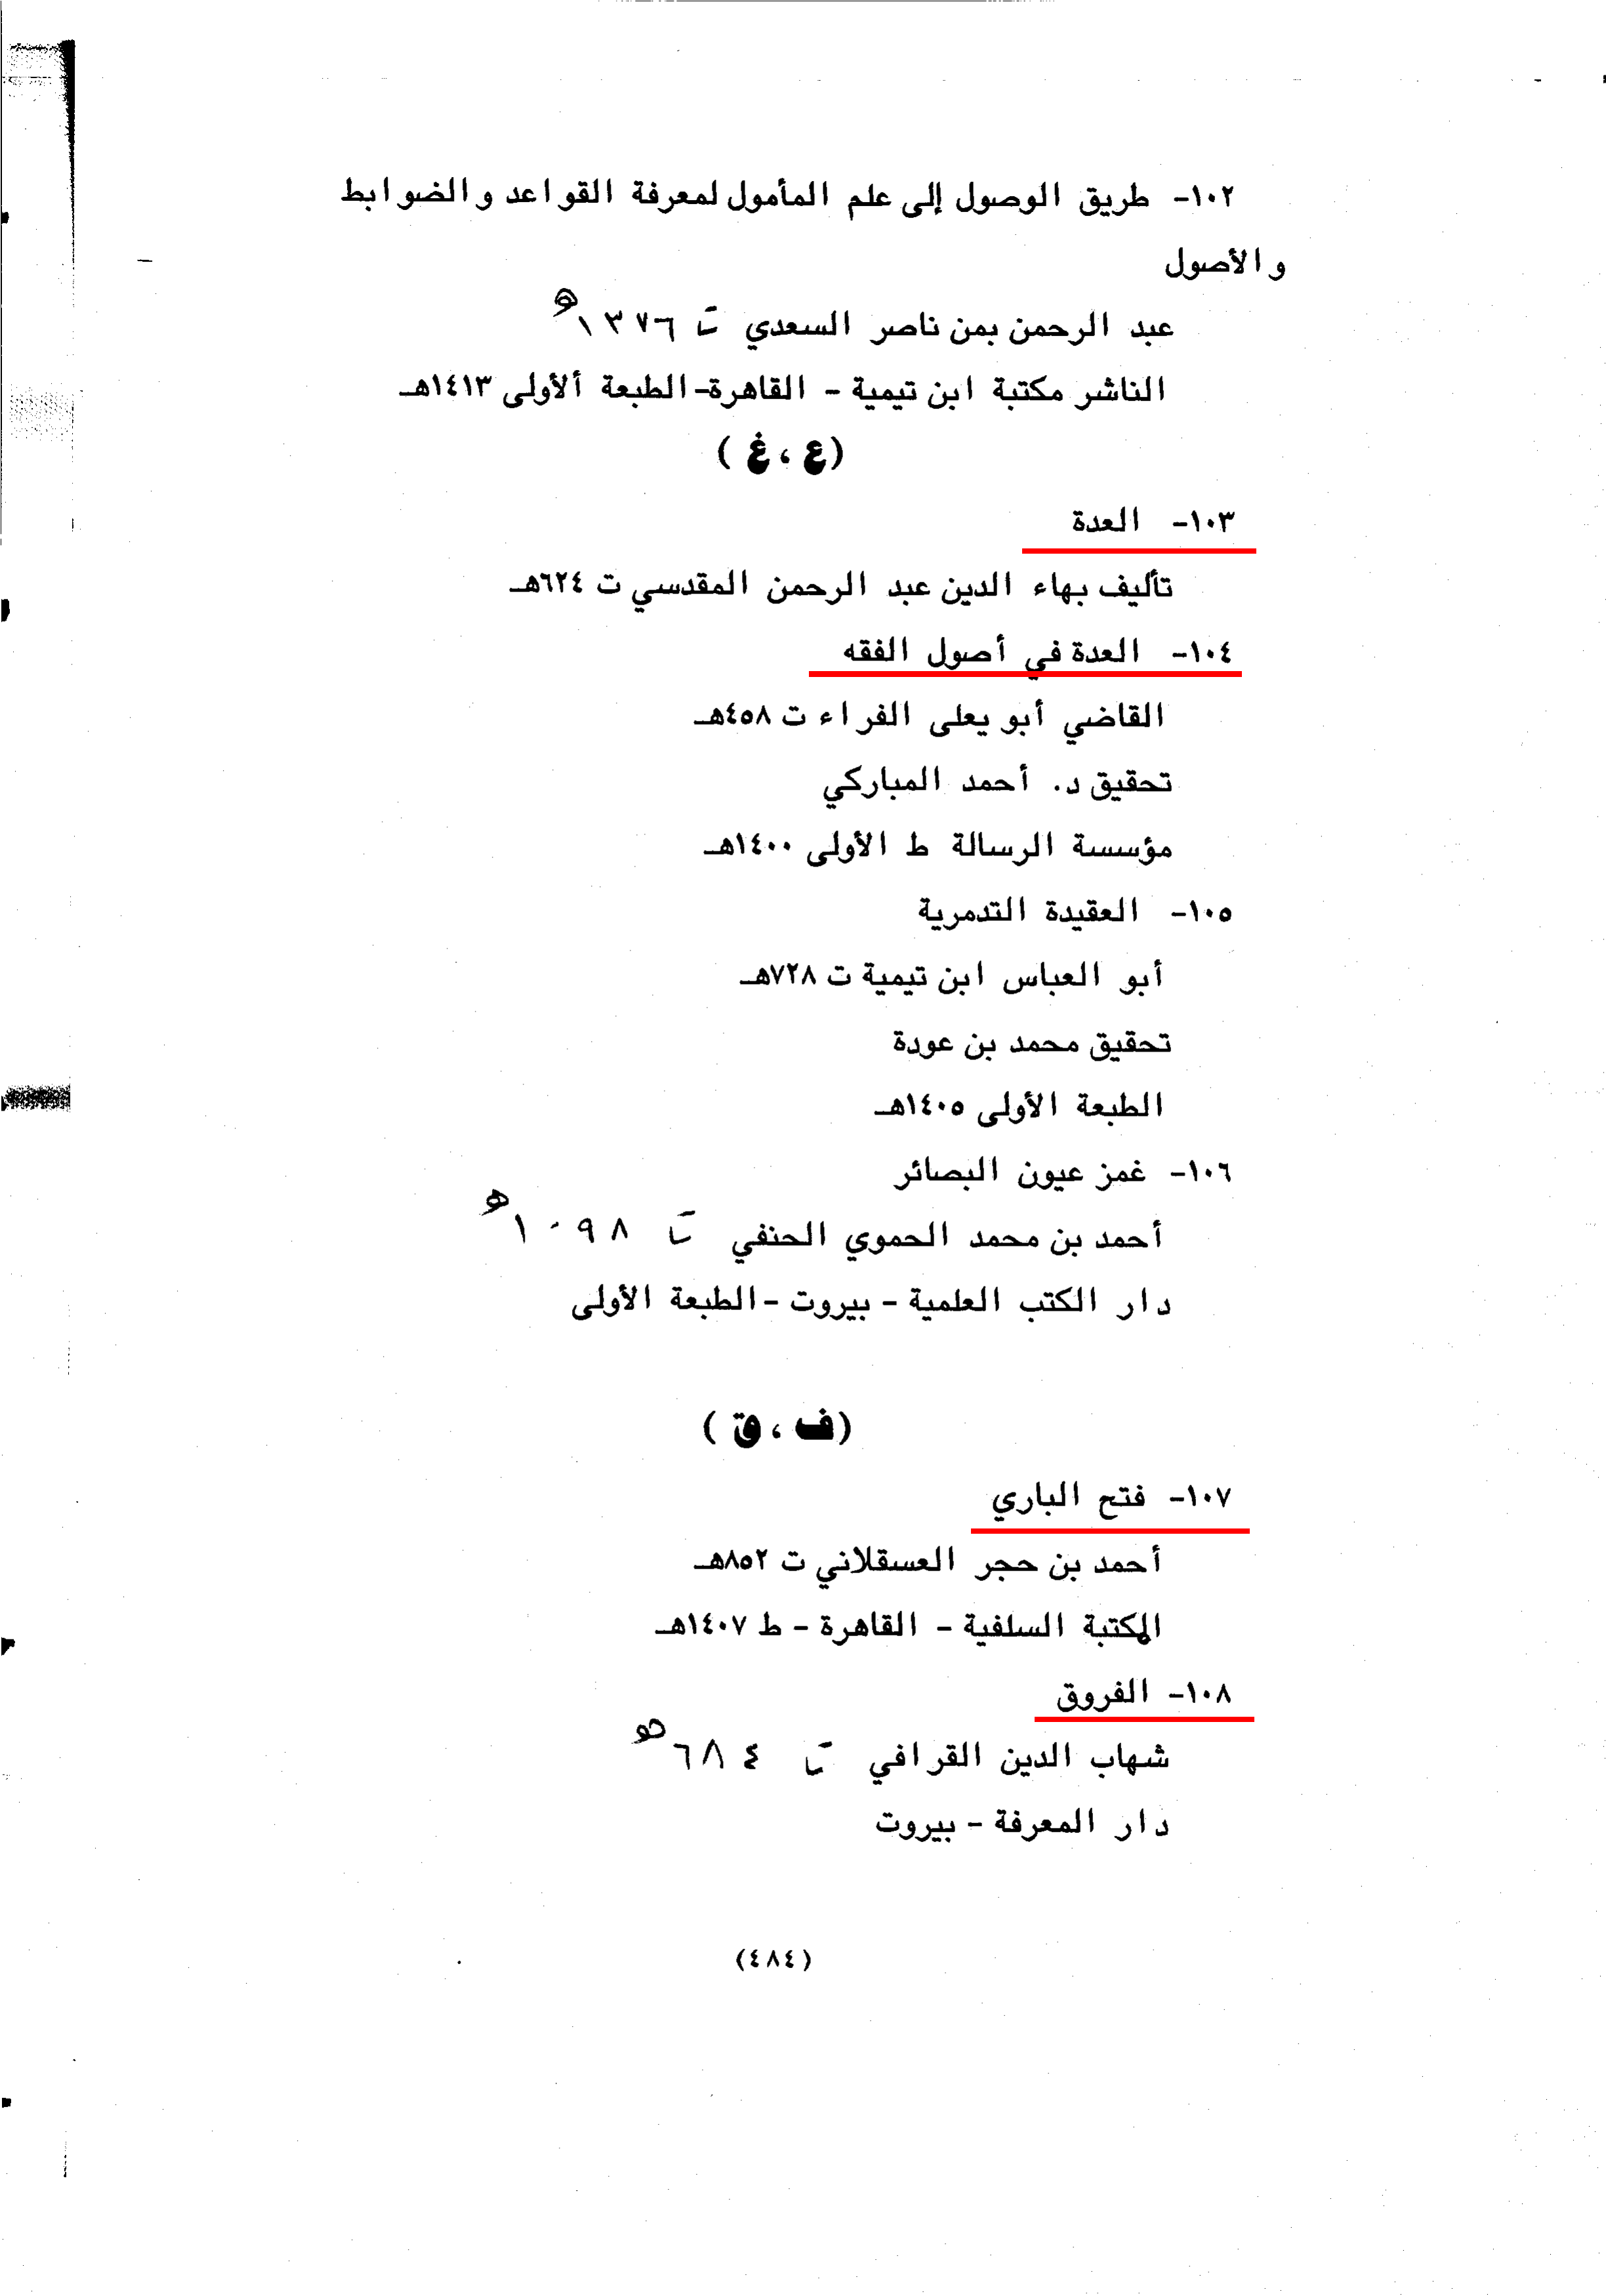 ١٠٢- طريق الوصول إلى علم المأمول لمعرفة القواعد والضوابط
والأصول
عبد الرحمن بمن ناصر السعدي ت ١٣٧٦ هـ
الناشر مكتبة ابن تيمية - القاهرة-الطبعة ألأولى ١٤١٣هـ
(ع ، غ )
١٠٣- العدة
تأليف بهاء الدين عبد الرحمن المقدسي ت ٦٢٤هـ
١٠٤- العدة في أصول الفقه
القاضي أبو يعلى الفراء ت ٤٥٨هـ
تحقيق د. أحمد المباركي
مؤسسة الرسالة ط الأولى ١٤٠٠هـ
١٠٥- العقيدة التدمرية
أبو العباس ابن تيمية ت ٧٢٨هـ
تحقيق محمد بن عودة
الطبعة الأولى ١٤٠٥هـ
١٠٦- غمز عيون البصائر
أحمد بن محمد الحموي الحنفي ت ١٠٩٨ هـ
دار الكتب العلمية - بيروت -الطبعة الأولى
(ف ، ق )
١٠٧- فتح الباري
أحمد بن حجر العسقلاني ت ٨٥٢هـ
المكتبة السلفية - القاهرة - ط ١٤٠٧هـ
١٠٨- الفروق
شهاب الدين القرافي ت ٦٨٤ هـ
دار المعرفة - بيروت
(٤٨٤)